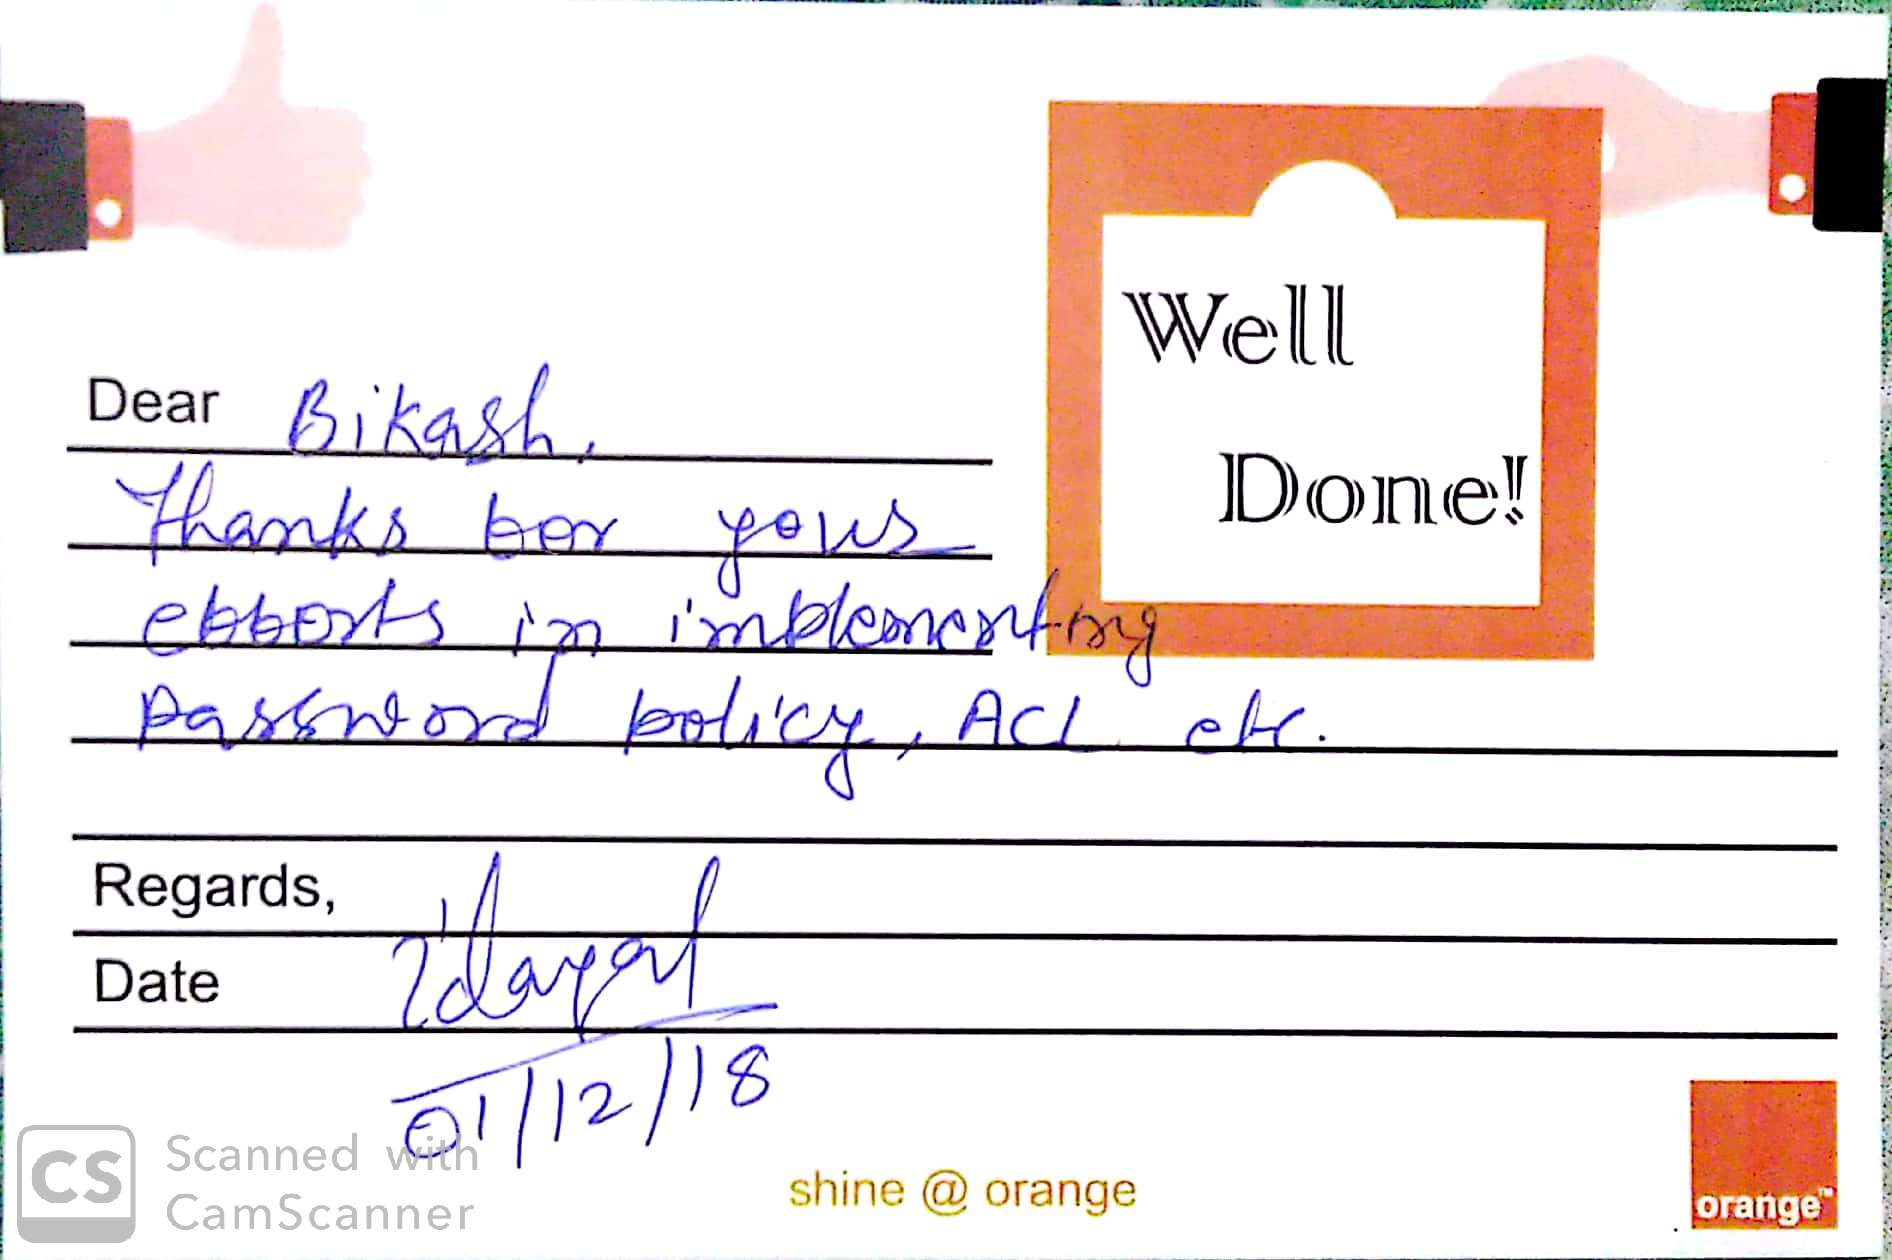 Well
Done!
Dear Bikash,
Thanks for your
efforts in implementing
password policy, ACL etc.
Regards,
Date
01/12/18
shine @ orange
orange™
CS Scanned with
CamScanner